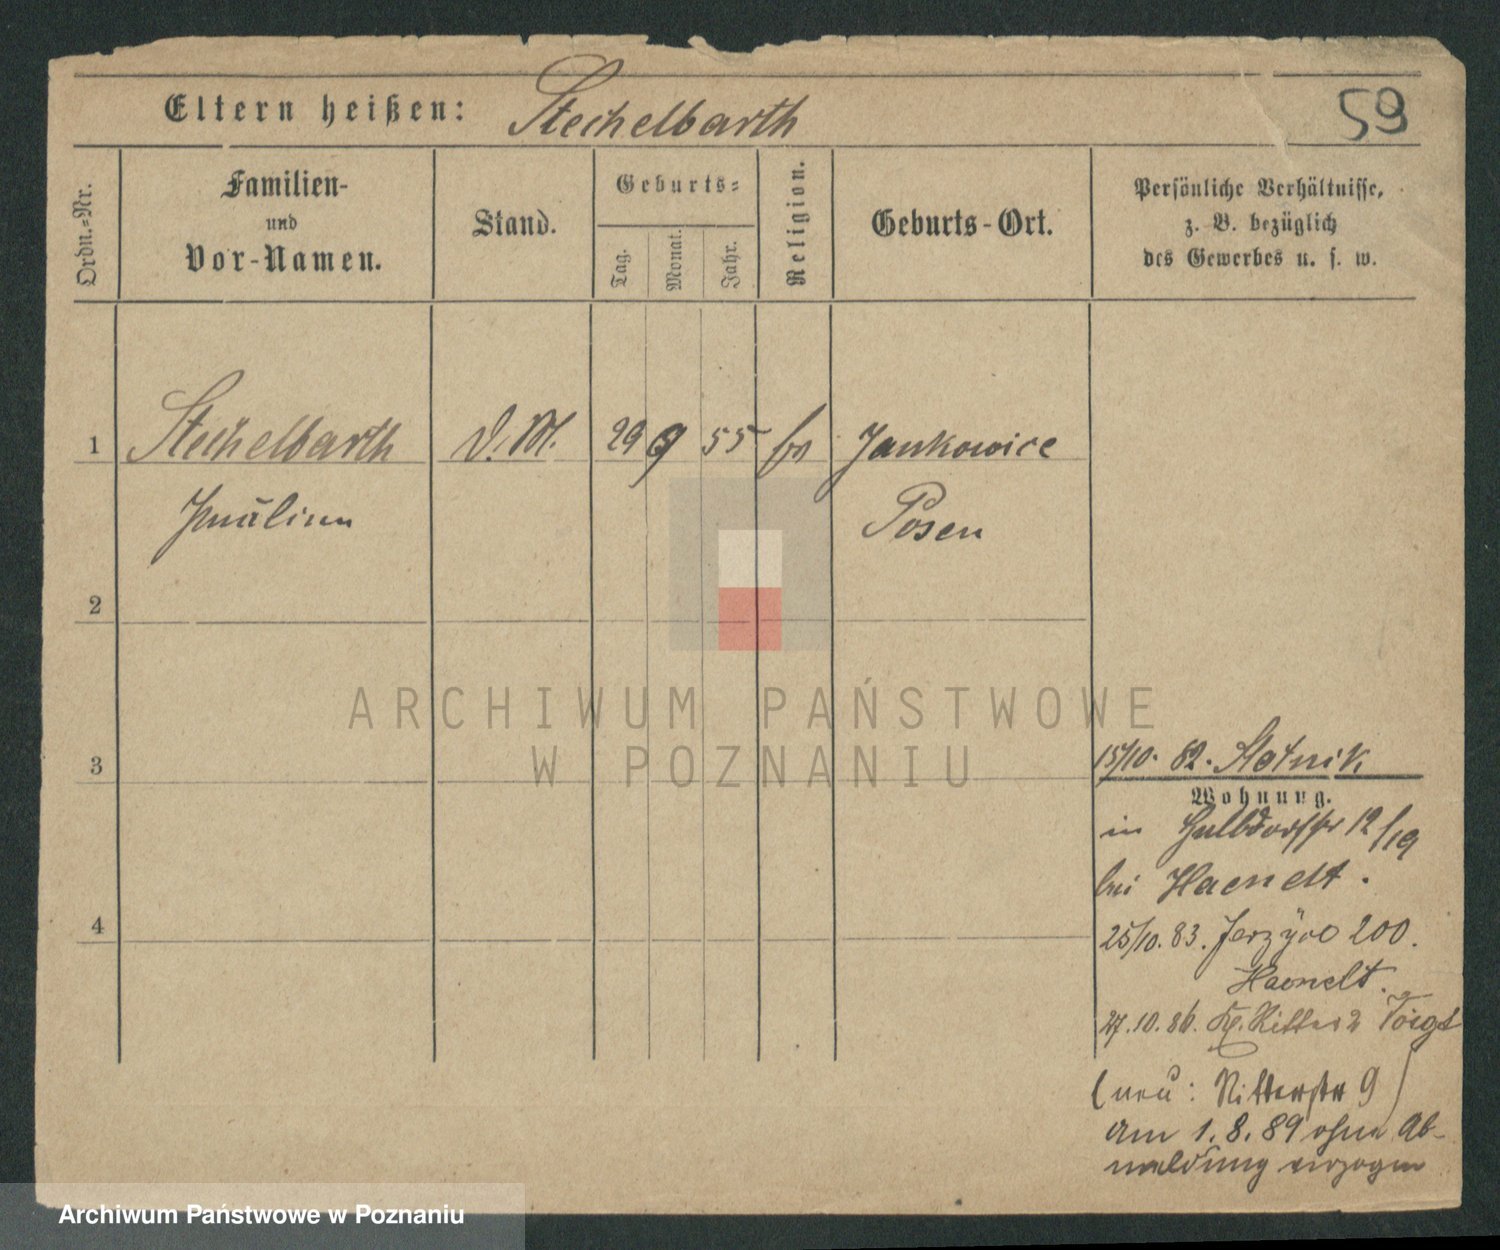 Eltern heißen: Stechelbarth
59
Ordn.=Nr.
Familien-
und
Vor-Namen.
Stand.
Geburts=
Tag.
Monat.
Jahr.
Religion.
Geburts-Ort.
Persönliche Verhältnisse,
z. B. bezüglich
des Gewerbes u. s. w.
1 Stechelbarth D.M. 29 9 55 Jankowice
Posen
2
3
4
15/10. 82. Slotnik
Wohnung.
in Halbdorfstr 12/19
bei Haenelt.
25/10. 83. 200.
Haenelt.
27.10.86. Kl. Ritter 2 Voigt
(neu: Ritterstr 9)
am 1. 8. 89 ohne Ab-
meldung verzogen
ARCHIWUM PAŃSTWOWE
W POZNANIU
Archiwum Państwowe w Poznaniu